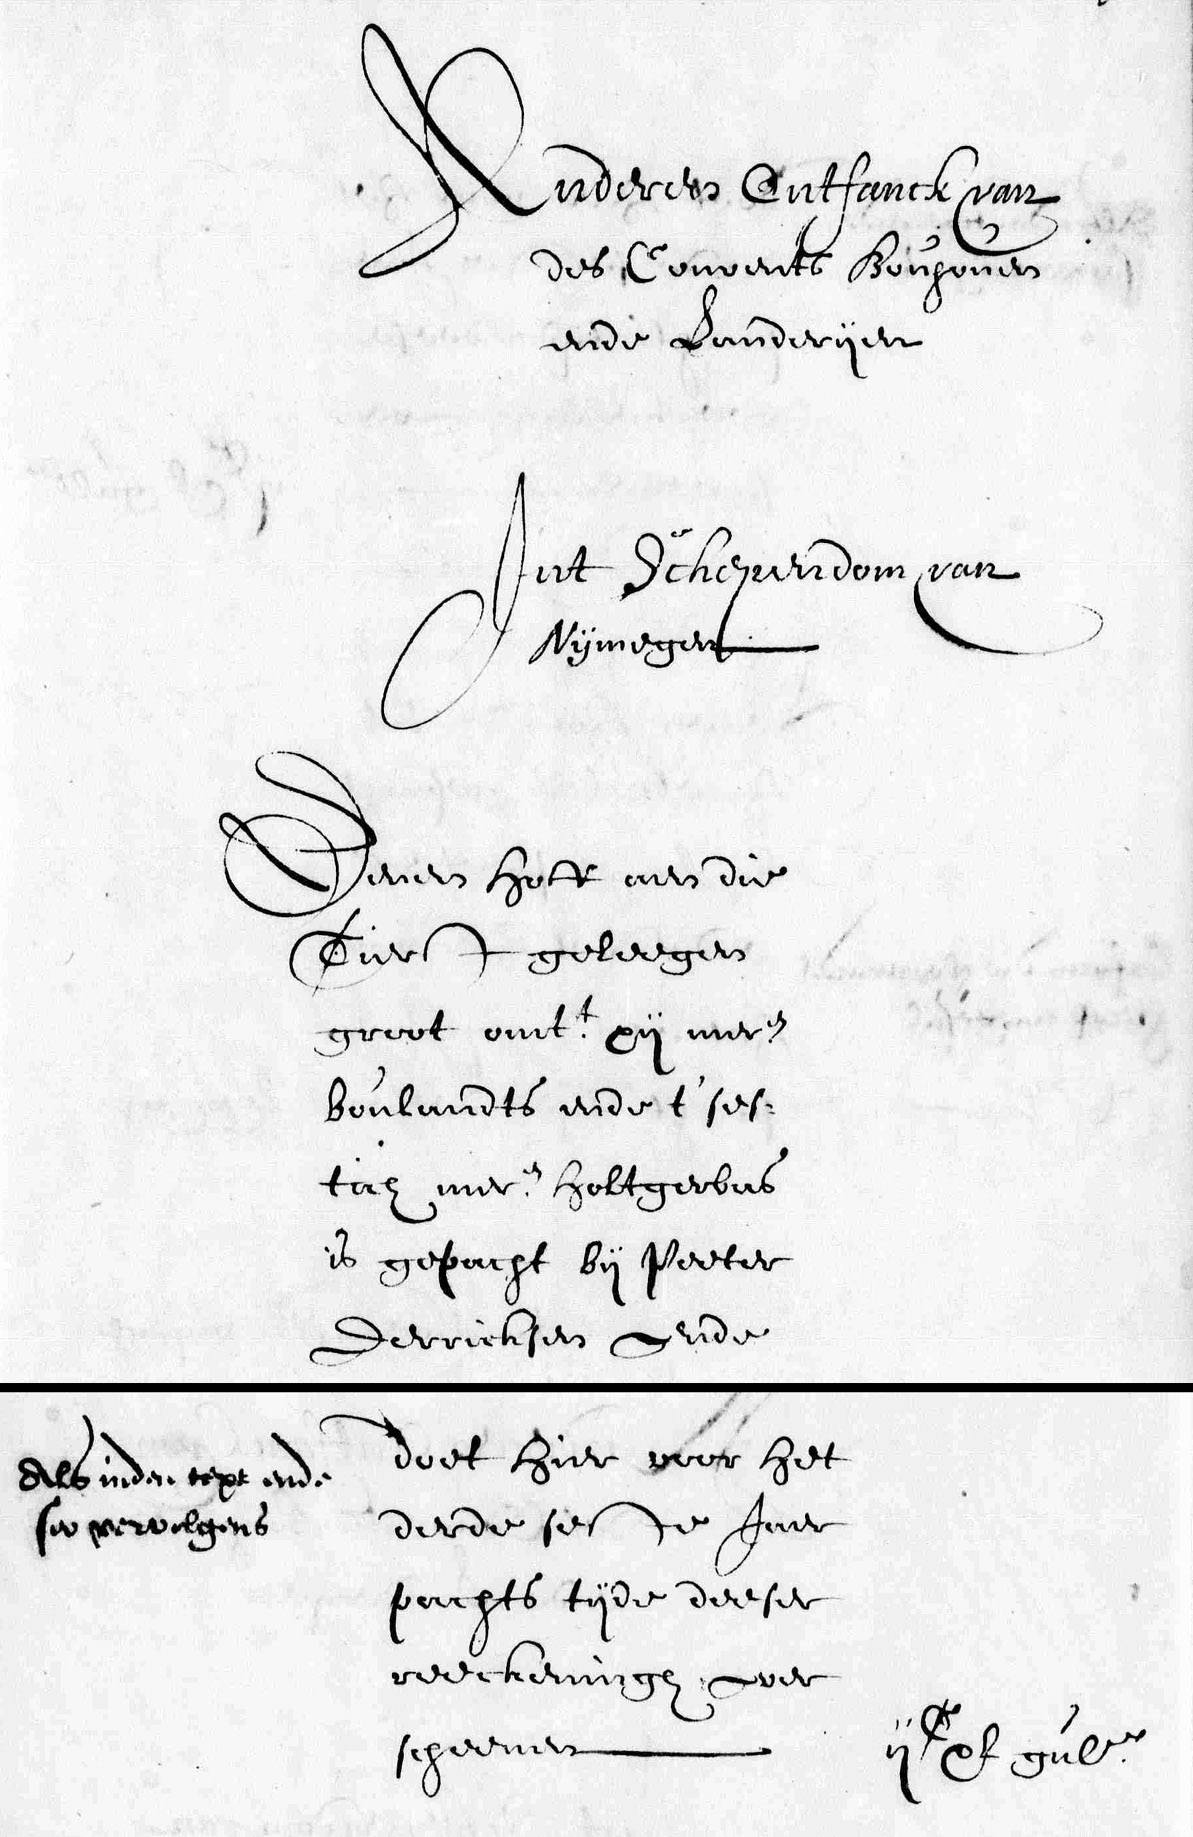 Anderen Entfanck van
des Convents Bouhoven
ende Landerijen
Int Schependom van
Nijmegen
Eenen Hoff aen die
Tiet geleegen
groot omt.t xij mer.
boulandts ende t' ses:
tich mer. holtgerbus
is gepacht bij Peeter
Derricksen Ende
Als inden text ende
so vervolgens
doet hier voor het
derde seste Jaer
pachts tijde deeser
reeckeningh Ver
scheenen
ij C xl gul.